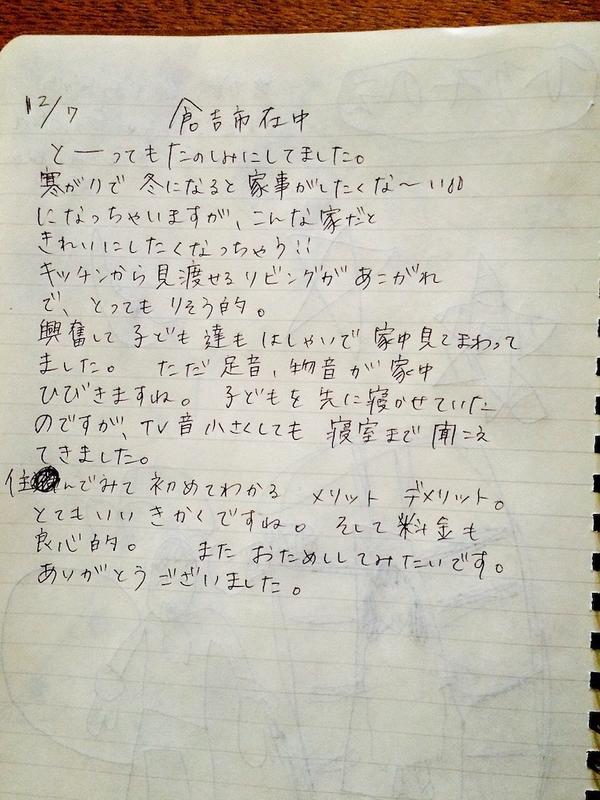 12/7 倉吉市在中
とーってもたのしみにしてました。
寒がりで 冬になると 家事がしたくな〜い
になっちゃいますが、こんな家だと
きれいにしたくなっちゃう!!
キッチンから見渡せるリビングがあこがれ
で、とっても りそう的。
興奮して 子ども達も はしゃいで 家中見てまわって
ました。 ただ 足音、物音が 家中
ひびきますね。 子どもを 先に寝かせていた
のですが、TV音 小さくしても 寝室まで 聞こえ
てきました。
住んでみて 初めてわかる メリット デメリット。
とてもいい きかくですね。 そして 料金も
良心的。 また おためししてみたいです。
ありがとうございました。